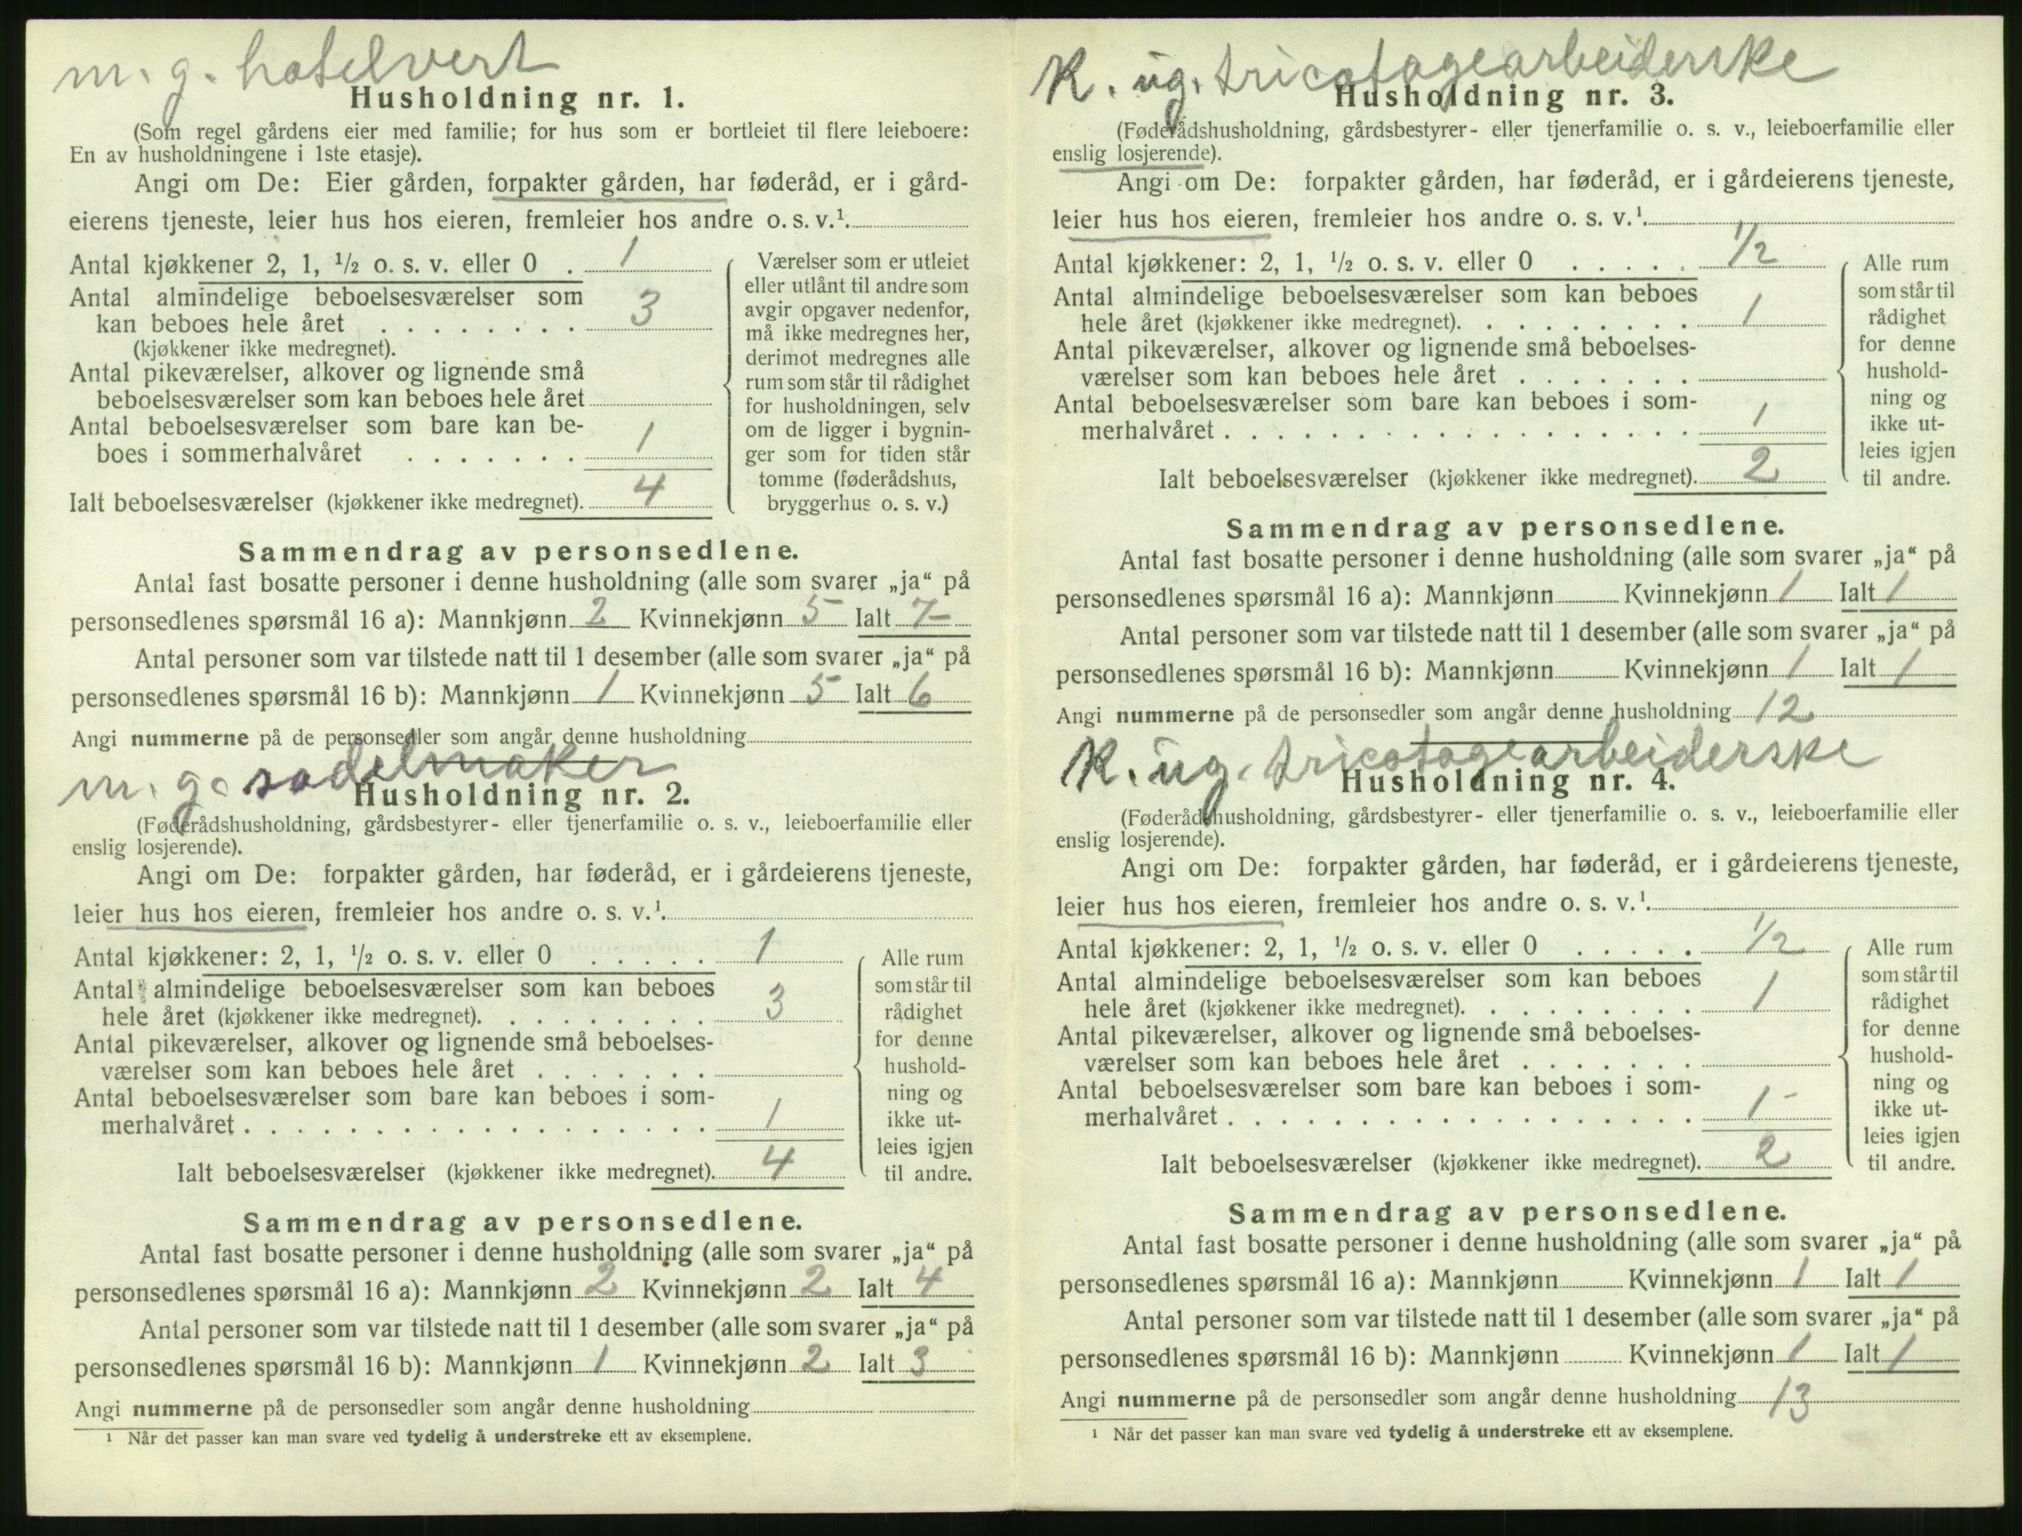 m. g. hotelvert
Husholdning nr. 1.
(Som regel gårdens eier med familie; for hus som er bortleiet til flere leieboere:
En av husholdningene i 1ste etasje).
Angi om De: Eier gården, forpakter gården, har føderåd, er i gård-
eierens tjeneste, leier hus hos eieren, fremleier hos andre o. s. v.¹.
Antal kjøkkener 2, 1, ½ o. s. v. eller 0 . 1
Antal almindelige beboelsesværelser som
kan beboes hele året . . . . . . . . 3
(kjøkkener ikke medregnet).
Antal pikeværelser, alkover og lignende små
beboelsesværelser som kan beboes hele året
Antal beboelsesværelser som bare kan be-
boes i sommerhalvåret . . . . . . . 1
Ialt beboelsesværelser (kjøkkener ikke medregnet). 4
Værelser som er utleiet
eller utlånt til andre som
avgir opgaver nedenfor,
må ikke medregnes her,
derimot medregnes alle
rum som står til rådighet
for husholdningen, selv
om de ligger i bygnin-
ger som for tiden står
tomme (føderådshus,
bryggerhus o. s. v.)
Sammendrag av personsedlene.
Antal fast bosatte personer i denne husholdning (alle som svarer „ja“ på
personsedlenes spørsmål 16 a): Mannkjønn 2 Kvinnekjønn 5 Ialt 7
Antal personer som var tilstede natt til 1 desember (alle som svarer „ja“ på
personsedlenes spørsmål 16 b): Mannkjønn 1 Kvinnekjønn 5 Ialt 6
Angi nummerne på de personsedler som angår denne husholdning
m. g. sadelmaker
Husholdning nr. 2.
(Føderådshusholdning, gårdsbestyrer- eller tjenerfamilie o. s. v., leieboerfamilie eller
enslig losjerende).
Angi om De: forpakter gården, har føderåd, er i gårdeierens tjeneste,
leier hus hos eieren, fremleier hos andre o. s. v.¹.
Antal kjøkkener: 2, 1, ½ o. s. v. eller 0 . . . . . 1
Antal almindelige beboelsesværelser som kan beboes
hele året (kjøkkener ikke medregnet). . . . . . . . . 3
Antal pikeværelser, alkover og lignende små beboelses-
værelser som kan beboes hele året . . . . . . .
Antal beboelsesværelser som bare kan beboes i som-
merhalvåret . . . . . . . . . . . . . . . . . . 1
Ialt beboelsesværelser (kjøkkener ikke medregnet). 4
Alle rum
som står til
rådighet
for denne
hushold-
ning og
ikke ut-
leies igjen
til andre.
Sammendrag av personsedlene.
Antal fast bosatte personer i denne husholdning (alle som svarer „ja“ på
personsedlenes spørsmål 16 a): Mannkjønn 2 Kvinnekjønn 2 Ialt 4
Antal personer som var tilstede natt til 1 desember (alle som svarer „ja“ på
personsedlenes spørsmål 16 b): Mannkjønn 1 Kvinnekjønn 2 Ialt 3
Angi nummerne på de personsedler som angår denne husholdning
¹ Når det passer kan man svare ved tydelig å understreke ett av eksemplene.
K. ug. tricotagearbeiderske
Husholdning nr. 3.
(Føderådshusholdning, gårdsbestyrer- eller tjenerfamilie o. s. v., leieboerfamilie eller
enslig losjerende).
Angi om De: forpakter gården, har føderåd, er i gårdeierens tjeneste,
leier hus hos eieren, fremleier hos andre o. s. v.¹.
Antal kjøkkener: 2, 1, ½ o. s. v. eller 0 . . . . . 1/2
Antal almindelige beboelsesværelser som kan beboes
hele året (kjøkkener ikke medregnet). . . . . . . . . 1
Antal pikeværelser, alkover og lignende små beboelses-
værelser som kan beboes hele året . . . . . . .
Antal beboelsesværelser som bare kan beboes i som-
merhalvåret . . . . . . . . . . . . . . . . . . 1
Ialt beboelsesværelser (kjøkkener ikke medregnet). 2
Alle rum
som står til
rådighet
for denne
hushold-
ning og
ikke ut-
leies igjen
til andre.
Sammendrag av personsedlene.
Antal fast bosatte personer i denne husholdning (alle som svarer „ja“ på
personsedlenes spørsmål 16 a): Mannkjønn Kvinnekjønn 1 Ialt 1
Antal personer som var tilstede natt til 1 desember (alle som svarer „ja“ på
personsedlenes spørsmål 16 b): Mannkjønn Kvinnekjønn 1 Ialt 1
Angi nummerne på de personsedler som angår denne husholdning 12
K. ug. tricotagearbeiderske
Husholdning nr. 4.
(Føderådshusholdning, gårdsbestyrer- eller tjenerfamilie o. s. v., leieboerfamilie eller
enslig losjerende).
Angi om De: forpakter gården, har føderåd, er i gårdeierens tjeneste,
leier hus hos eieren, fremleier hos andre o. s. v.¹.
Antal kjøkkener: 2, 1, ½ o. s. v. eller 0 . . . . . 1/2
Antal almindelige beboelsesværelser som kan beboes
hele året (kjøkkener ikke medregnet). . . . . . . . . 1
Antal pikeværelser, alkover og lignende små beboelses-
værelser som kan beboes hele året . . . . . . .
Antal beboelsesværelser som bare kan beboes i som-
merhalvåret . . . . . . . . . . . . . . . . . . 1
Ialt beboelsesværelser (kjøkkener ikke medregnet). 2
Alle rum
som står til
rådighet
for denne
hushold-
ning og
ikke ut-
leies igjen
til andre.
Sammendrag av personsedlene.
Antal fast bosatte personer i denne husholdning (alle som svarer „ja“ på
personsedlenes spørsmål 16 a): Mannkjønn Kvinnekjønn 1 Ialt 1
Antal personer som var tilstede natt til 1 desember (alle som svarer „ja“ på
personsedlenes spørsmål 16 b): Mannkjønn Kvinnekjønn 1 Ialt 1
Angi nummerne på de personsedler som angår denne husholdning 13
¹ Når det passer kan man svare ved tydelig å understreke ett av eksemplene.